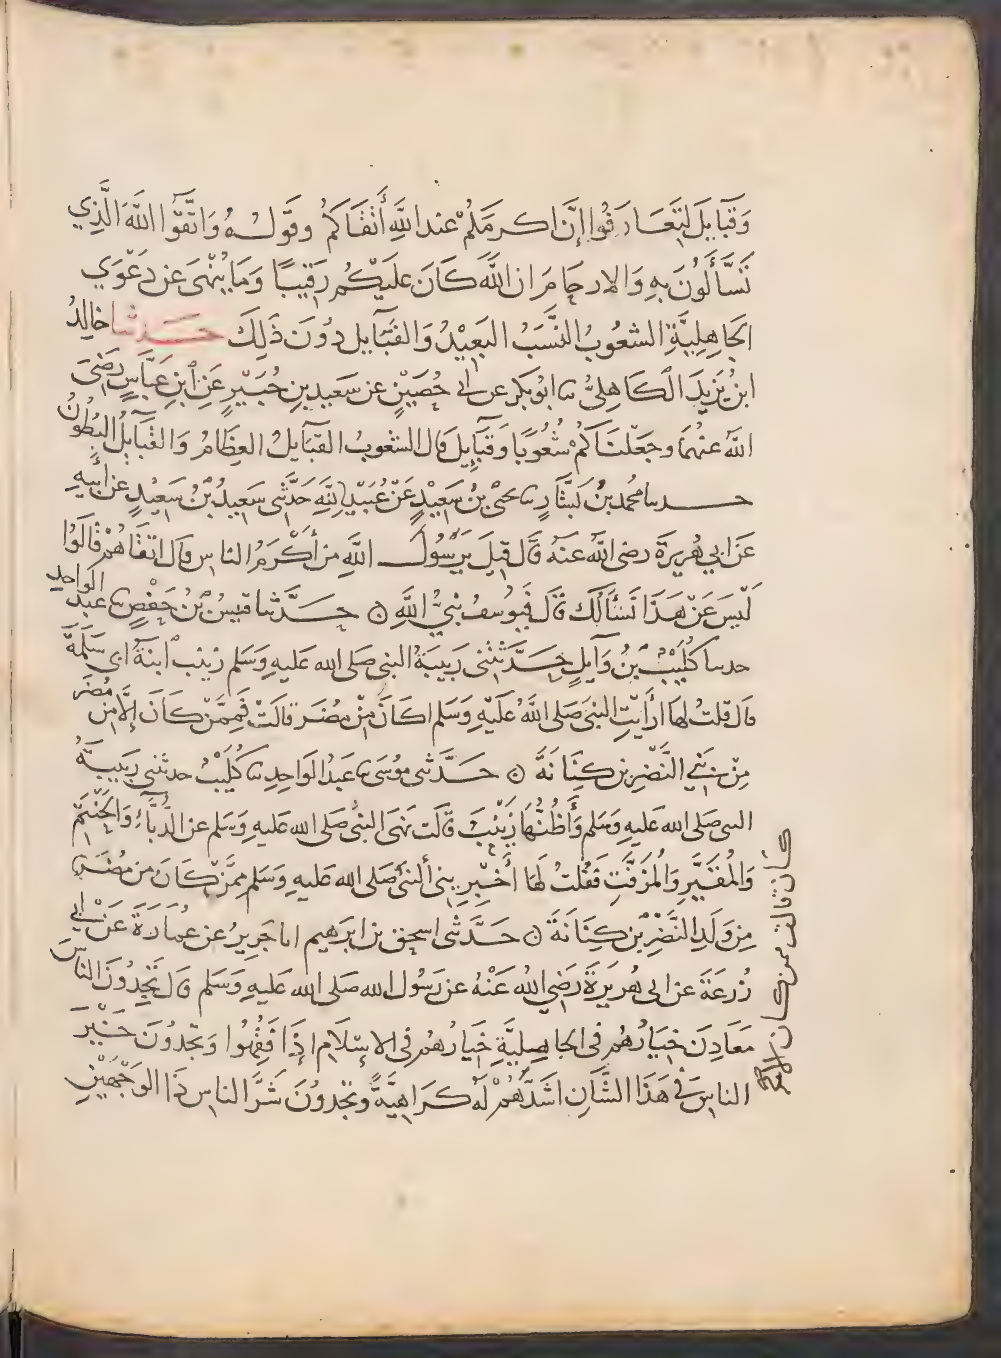 وَقَبَآيِلَ لِتَعَارَفُوا إِنَّ اكرمَكُمْ عند اللَّهِ أَتْقَاكُمْ وقَوْلِهُ وَاتَّقُوا اللَّهَ الَّذِي
تَسَّآَلُونَ بِهِ وَالارحَامَ ان اللَّهَ كَانَ عَلَيْكُم رَقِيبًا وَمَا يُنْهَى عَن دَعْوَي
الجَاهِلِيَّةِ الشعُوبُ النَّسَبُ البَعِيْدُ وَالقَبَآيل دُونَ ذَلِكَ حَدثنا خالِدُ
ابنُ يَزِيدَ الْكَاهِلِيُّ نا ابوُ بَكر عن ابي حُصَيْنٍ عن سَعِيدِ بنِ جُبَيْرٍ عَنِ ابنِ عَبَّاسٍ رَضيَ
اللهُ عَنْهُمَا وجَعَلْنَاكُمْ شُعُوبًا وَقَبَآيِلَ قَال الشعُوبُ القَبَآيلُ العِظَامُ وَالقَبَآيِلُ البُطُونُ
حدىنا محُمد بنُ بَشَّارٍ نا يحيَى بنُ سَعِيْدٍ عَنْ عُبَيْدِ اللَّهِ حَدَّثَني سَعِيدُ بْنُ سَعِيْدٍ عَن أَبِيهِ
عَن ابي هُرَيرَةَ رضى اللهُ عنهُ قَال قِيلَ يَرَسُولَ اللَّهِ من أَكْرَمُ الناس قال اتقَاهُمْ قَالُوا
لَيْسَ عَنْ هَذَا نَسْأَلُك قَال فَيوُسفُ نَبِيُّ اللَّهِ ۝ حَدَّثنا قيسُ بنُ حَفْصٍ نا عبدُ الواحِدِ
حدىنا كُلَيْبُ بنُ وَآيِلٍ حَدَّثَتْنِي رَبِيبَةُ النبي صَلى الله عَليهِ وَسَلم زينب ابنةُ ابى سَلَمَةَ
قَال قلتُ لهَا ارَأَيْتِ النبيَ صَلى اللَّهُ عَلَيْهِ وَسَلم اكَانَ مِنْ مُضَرَ قالَتْ فَمِمَّنْ كَانَ إِلَّا مِن مُضَرَ
مِنْ بَنِي النَّضْرِ بن كِنَانَةَ ۝ حَدَّثَنى مُوسَى نا عَبدُ الوَاحِدِ نا كُلَيْبُ حدثتني رَبِيبَةُ
النبى صَلى الله عَليهِ وسَلم وَأَظُنُّهَا زَيْنَبَ قالَت نهَى النبُى صَلى الله عَليهِ وَسَلم عن الدُّبَّآءِ وَالحَنْتَمِ
وَالْمُقَيَّرِ وَالْمُزَفَّتِ فَقُلتُ لهَا أَخْبِرِيني أَلنبيُ صَلى الله عَليهِ وَسَلم مِمَّنْ كَانَ مِن مُضَرَ
كَانَ قالت مِمن كَان الا
مِن وَلَدِ النَّضْرِ بْنِ كِنَانَةَ ۝ حَدَّثنى اسحق بن ابرهيم انا جَرِيرُ عن عُمَارَةَ عَنْ ابي
زُرعَةَ عن ابى هُريرَةَ رَضي اللهُ عَنْهُ عن رَسُول الله صَلى الله عَليهِ وَسَلم قَال تَجِدُونَ الناسَ
مَعَادِنَ خِيَارُهُم في الجاهِلِيَّةِ خِيَارُهُمْ في الاِسْلَامِ إِذَا فَقُهُوا وَتجدُونَ خَيْرَ
الناسِ في هَذَا الشَّانِ اشَدَّهُمْ لَهُ كَرَاهِيَّةً وَتجدوُنَ شَرَّ الناس ذَا الوَجْهَيْنِ